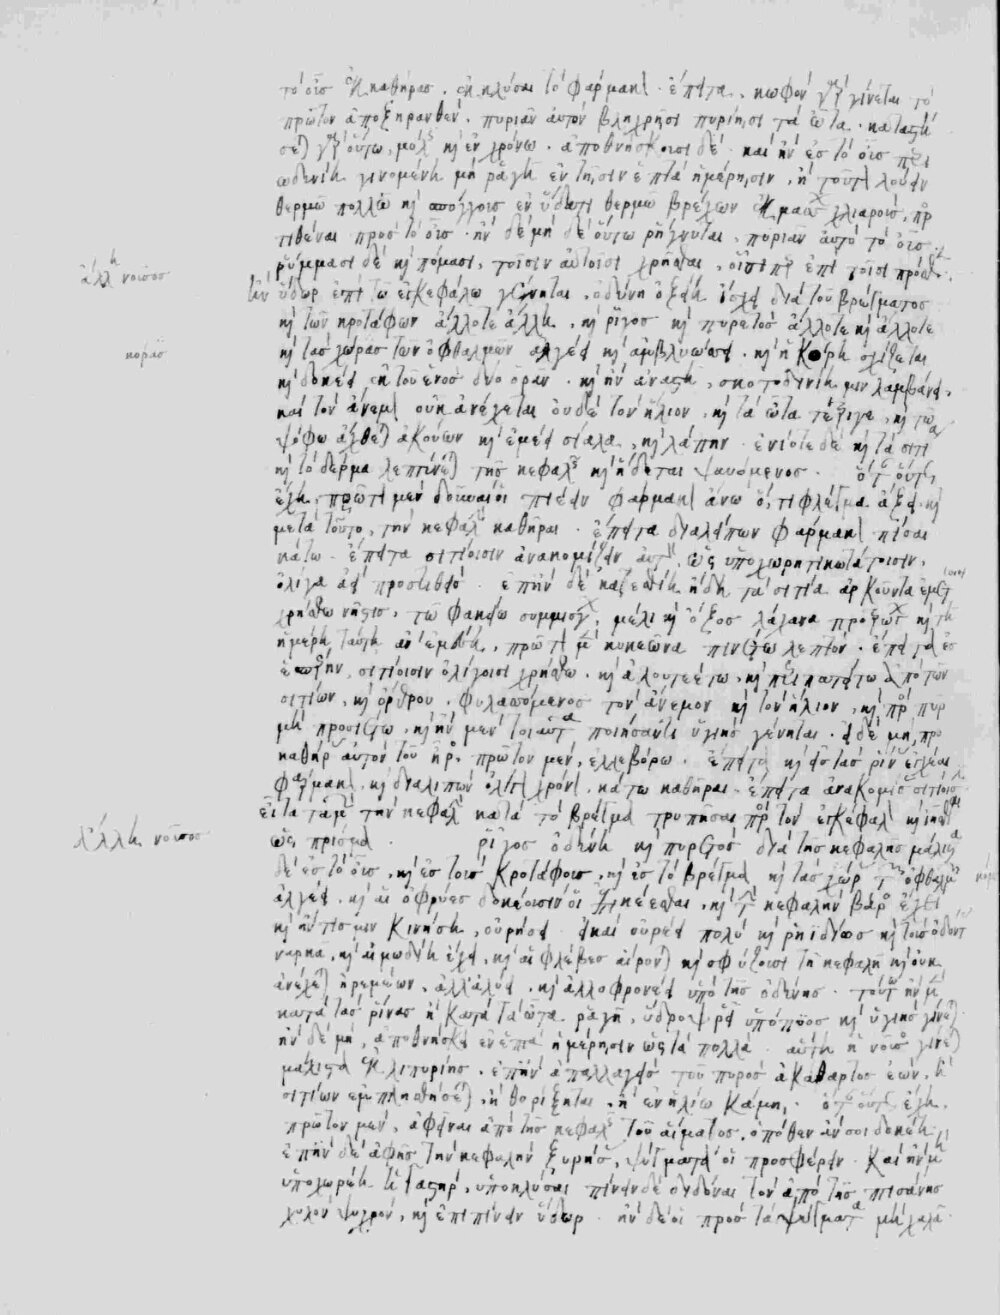 τὸ οὖς ἐκκαθήρας. ἐκκλύσαι τὸ φάρμακ. ἔπειτα, κωφὸν γὰρ γίνεται τὸ
πρῶτον ἀποξηρανθὲν. πυριᾶν αὐτὸν βληχρῇσι πυρίῃσι τὰ ὦτα. καταστή
σεται γὰρ οὕτω, μᾶλ καὶ ἐν χρόνω. ἀποθνήσκουσι δὲ. καὶ ἢν ἐς τὸ οὖς περι
ωδυνίη γινομένη μὴ ῥαγῆ ἐν τῇσιν ἑπτὰ ἡμέρῃσιν, ἢ τοῦτ λούειν
θερμῶ πολλῶ καὶ σπόγγους ἐν ὕδατι θερμῶ βρέχων ἐκμάσσων χλιαροὺς, πρ
τιθέναι πρὸς τὸ οὖς. ἢν δὲ μὴ δὲ οὕτω ῥήγνυται, πυριᾶν αὐτὸ τὸ οὖς.
ῥύμμασι δὲ καὶ πόμασι, τοῖσιν αὐτοῖσι χρῆσθαι, οἷσιπερ ἐπὶ τοῖσι πρόσθεν.
ἄλλη νοῦσος
ἢν ὕδωρ ἐπὶ τῶ ἐγκεφάλω γένηται, ὀδύνη ὀξείη ἴσχει διὰ τοῦ βρέγματος
καὶ τῶν κροτάφων ἄλλοτε ἄλλη, καὶ ῥῖγος καὶ πυρετὸς ἄλλοτε καὶ ἄλλοτε
κοράς
καὶ τὰς χώρας τῶν ὀφθαλμῶν ἀλγέει καὶ ἀμβλυώσσει. καὶ ἡ κόρη σχίζεται
καὶ δοκέει ἐκ τοῦ ἑνὸς δύο ὁρᾶν. καὶ ἢν ἀναστῆ, σκοτοδινίη μιν λαμβάνει,
καὶ τὸν ἄνεμ οὐκ ἀνέχεται οὐδὲ τὸν ἥλιον, καὶ τὰ ὦτα τέτριγε, καὶ τῶ
ψόφω ἄχθεται ἀκούων καὶ ἐμέει σίαλα, καὶ λάπην. ἐνίοτε δὲ καὶ τὰ σιτία
καὶ τὸ δέρμα λεπτύνεται τῆς κεφαλῆς καὶ ἥδεται ψαυόμενος. ὅταν οὕτως
ἔχη, πρῶτ μὲν δοῦναί οἱ πιέειν φάρμακ ἄνω ὅ,τι φλέγμα ἄξει. καὶ
μετὰ τοῦτο, τὴν κεφαλὴν καθῆραι. ἔπειτα διαλείπων φάρμακ πῖσαι
κάτω. ἔπειτα σιτίοισιν ἀνακομίζειν αὐτ ὡς ὑποχωρητικωτάτοισιν,
ὀλίγα αἰεὶ προστιθεὶς. ἐπὴν δὲ κατεσθίη ἤδη τὰ σιτία ἀρκοῦντα ἐμέτ
χρήσθω νῆστις, τῶ φακίω συμμίσγων, μέλι καὶ ὄξος λάχανα προτρώγων καὶ τῆ
ἡμέρη ταύτη ἂν ἐμέση, πρῶτ μ κυκεῶνα πινέτω λεπτὸν. ἔπειτα ἐς
ἑσπέρην, σιτίοισιν ὀλίγοισι χρήσθω. καὶ ἀλουτεέτω, καὶ περιπατείτω ἀπὸ τῶν
σιτίων, καὶ ὄρθρου. φυλασσόμενος τὸν ἄνεμον καὶ τὸν ἥλιον, καὶ πρὸς πῦρ
μὴ προσίτω, καὶ ἢν μὲν τοιαῦτα ποιήσαντι ὑγιὴς γένηται. εἰ δὲ μὴ, προ
καθήρ αὐτὸν τοῦ ἦρος. πρῶτον μὲν, ἐλλεβόρω. ἔπειτα καὶ ἐς τὰς ῥῖνας ἐγχέαι
φάρμακ, καὶ διαλιπὼν ὀλίγ χρόν, κάτω καθῆραι. ἔπειτα ἀνακομίσας σιτίοισιν
εἶτα ταμ τὴν κεφαλ κατὰ τὸ βρέγμα τρυπῆσαι πρ τὸν ἐγκέφαλ καὶ ἰῆσθαι
ἄλλη νοῦσος
ὡς πρίσμα ῥῖγος ὀδύνη καὶ πυρετὸς διὰ τῆς κεφαλῆς μάλιστα
δὲ ἐς τὸ οὖς, καὶ ἐς τοὺς κροτάφους, καὶ ἐς τὸ βρέγμα καὶ τὰς χώρ τ ὀφθαλμῶν
ἀλγέει. καὶ αἱ ὀφρύες δοκέουσίν οἱ ἐπικέεσθαι, καὶ τ κεφαλὴν βάρος ἔχει
καὶ ἤν τις μιν κινήση, οὐρήσει. καὶ οὐρέει πολὺ καὶ ῥηϊδίως καὶ τοὺς ὀδόντ
ναρκᾶ, καὶ αἱμωδίη ἔχει, καὶ αἱ φλέβες αἴρονται καὶ σφύζουσι τῆ κεφαλῆ καὶ οὐκ
ἀνέχεται ἠρεμέων, ἀλλ' ἀλύει, καὶ ἀλλοφρονέει ὑπὸ τῆς ὀδύνης. τούτω ἢν μ
κατὰ τὰς ῥῖνας ἢ κατὰ τὰ ὦτα ῥαγῆ, ὕδωρ ὑπόπυος καὶ ὑγιὴς γίνεται.
ἢν δὲ μὴ, ἀποθνήσκει ἐν ἑπτὰ ἡμέρησιν ὡς τὰ πολλὰ. αὕτη ἡ νοῦσος γίνεται
μάλιστα ἐκ λιπυρίης. ἐπὴν ἀπαλλαγεὶς τοῦ πυρὸς ἀκάθαρτος ἐὼν, ἢ
σιτίων ἐμπιπλησθήσεται, ἢ θωρήξηται, ἢ ἐν ἡλίω κάμη,. ὅταν οὕτως ἔχη,
πρῶτον μὲν, ἀφεῖναι ἀπὸ τῆς κεφαλῆς τοῦ αἵματος, ὁπόθεν ἄν σοι δοκέη.
ἐπὴν δὲ ἀφῆς τὴν κεφαλὴν ξυρήσας, ψύγματά οἱ προσφέρειν. καὶ ἢν μὴ
ὑποχωρέη ἡ γαστὴρ, ὑποκλύσαι πίνειν δὲ διδόναι τὸν ἀπὸ τῆς πτισάνης
χυλὸν ψυχρὸν, καὶ ἐπιπίνειν ὕδωρ. ἢν δέ οἱ πρὸς τὰ ψύγματα μὴ χαλᾶ.